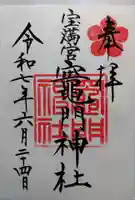 奉拝
宝満宮
竈門神社
令和七年六月二十四日